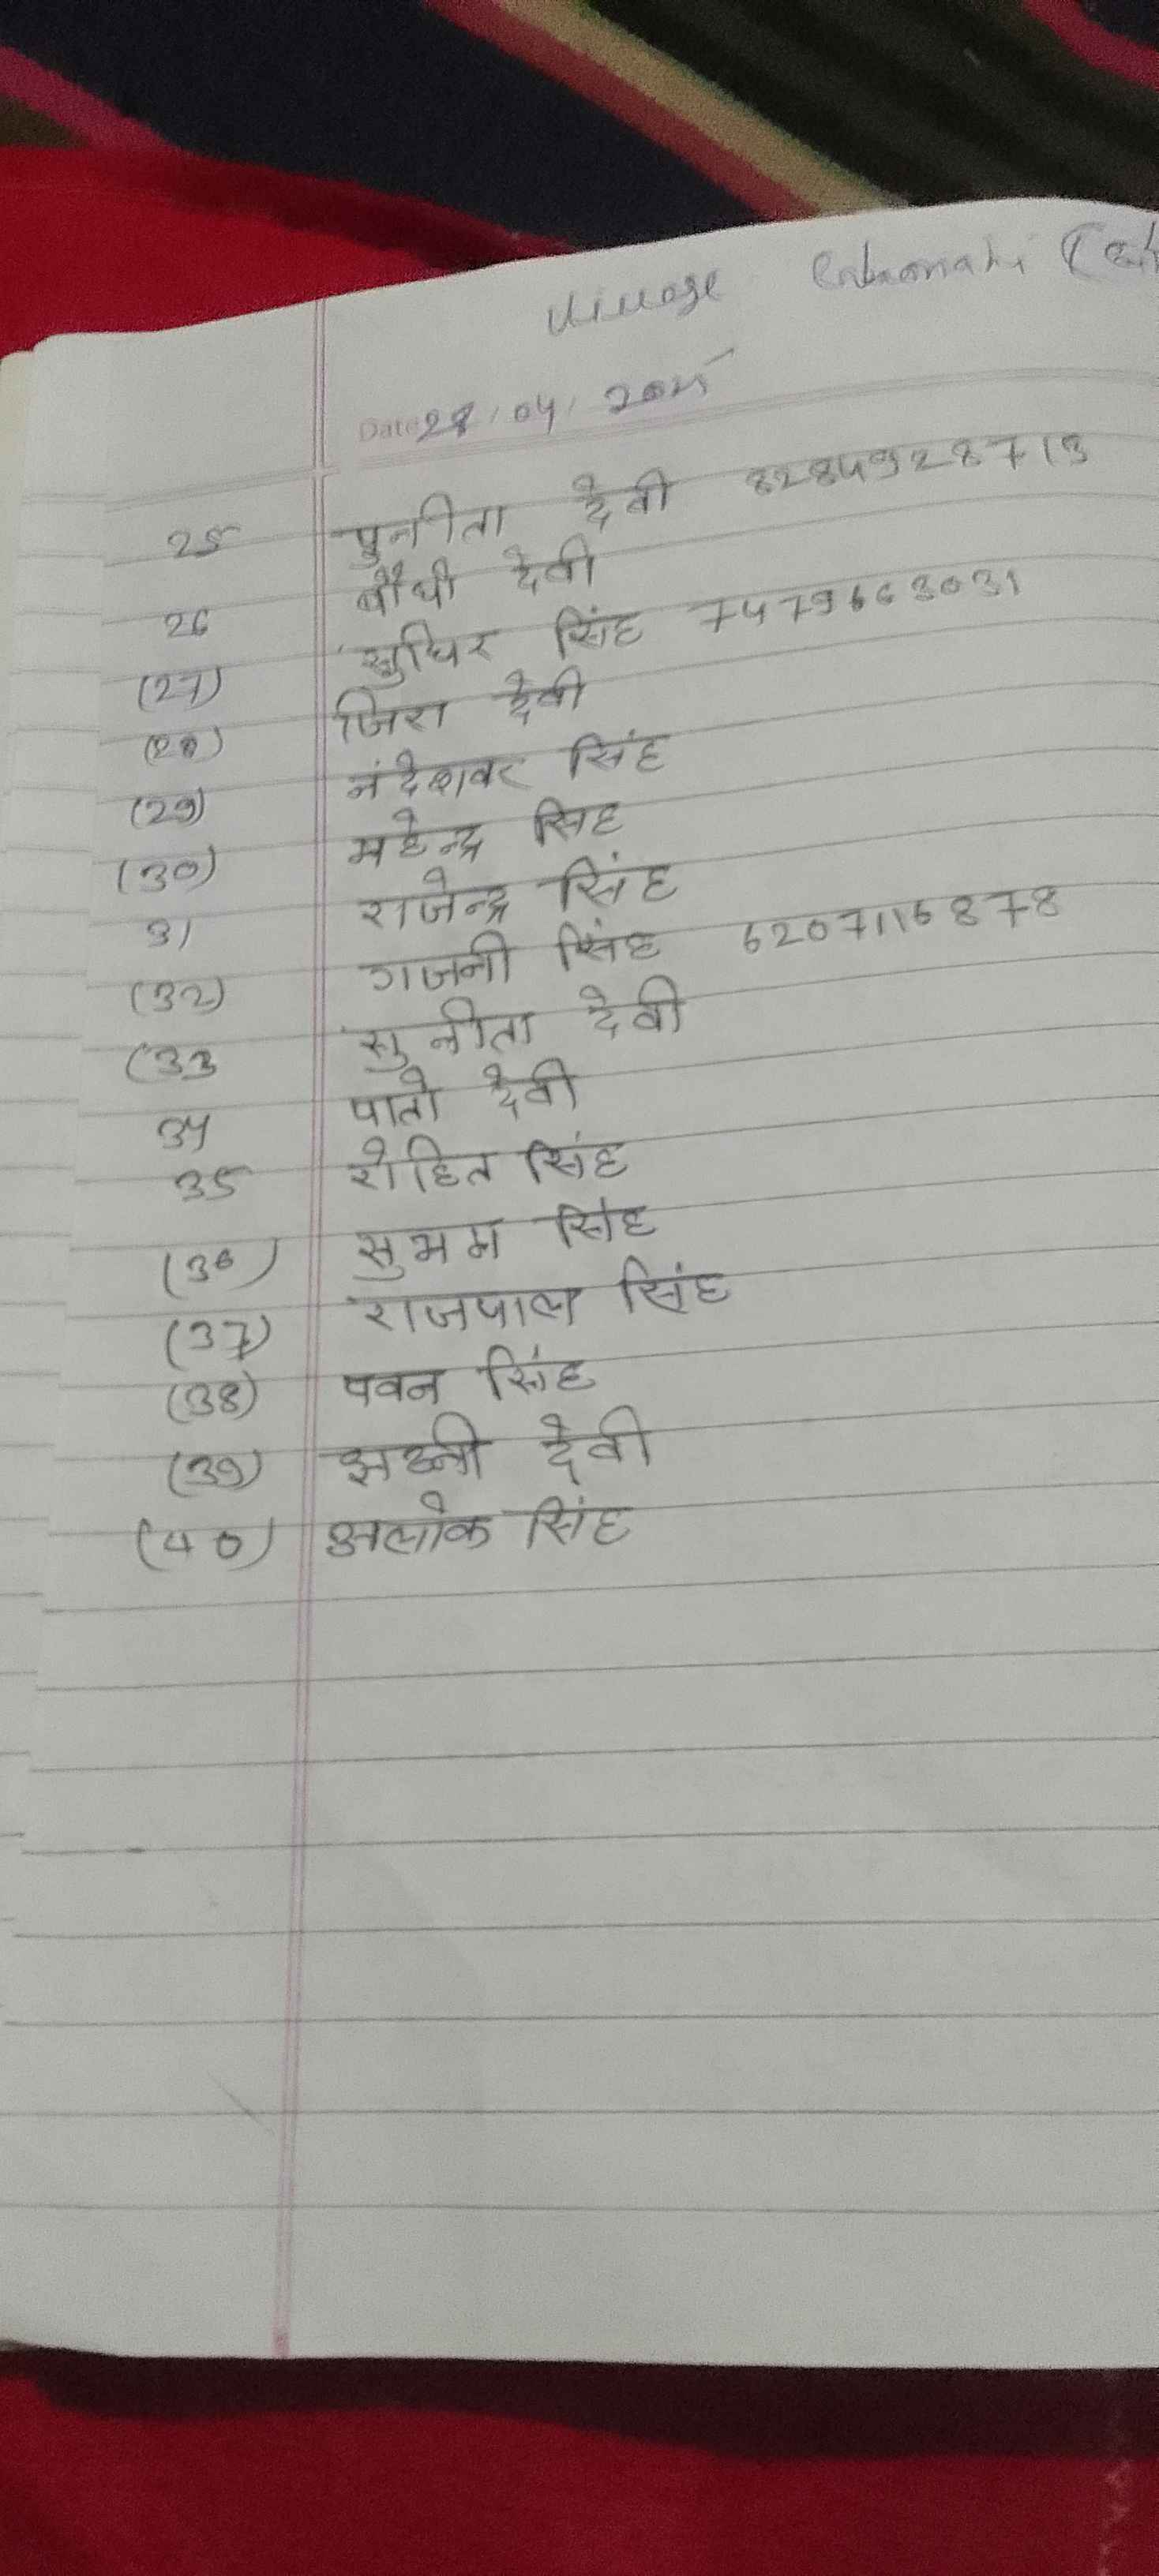 Village
Date 28/04/2025
25 पुनीता देवी 8284928713
26 बौधी देवी
(27) सुधिर सिंह 7479663031
(28) जिरा देवी
(29) नंदेशवर सिंह
(30) महेन्द्र सिंह
31 राजेन्द्र सिंह
(32) गजनी सिंह 6207116878
(33 सुनीता देवी
34 पातो देवी
35 रोहित सिंह
(36) सुभम सिंह
(37) राजपाल सिंह
(38) पवन सिंह
(39) देवी
(40) अलोक सिंह